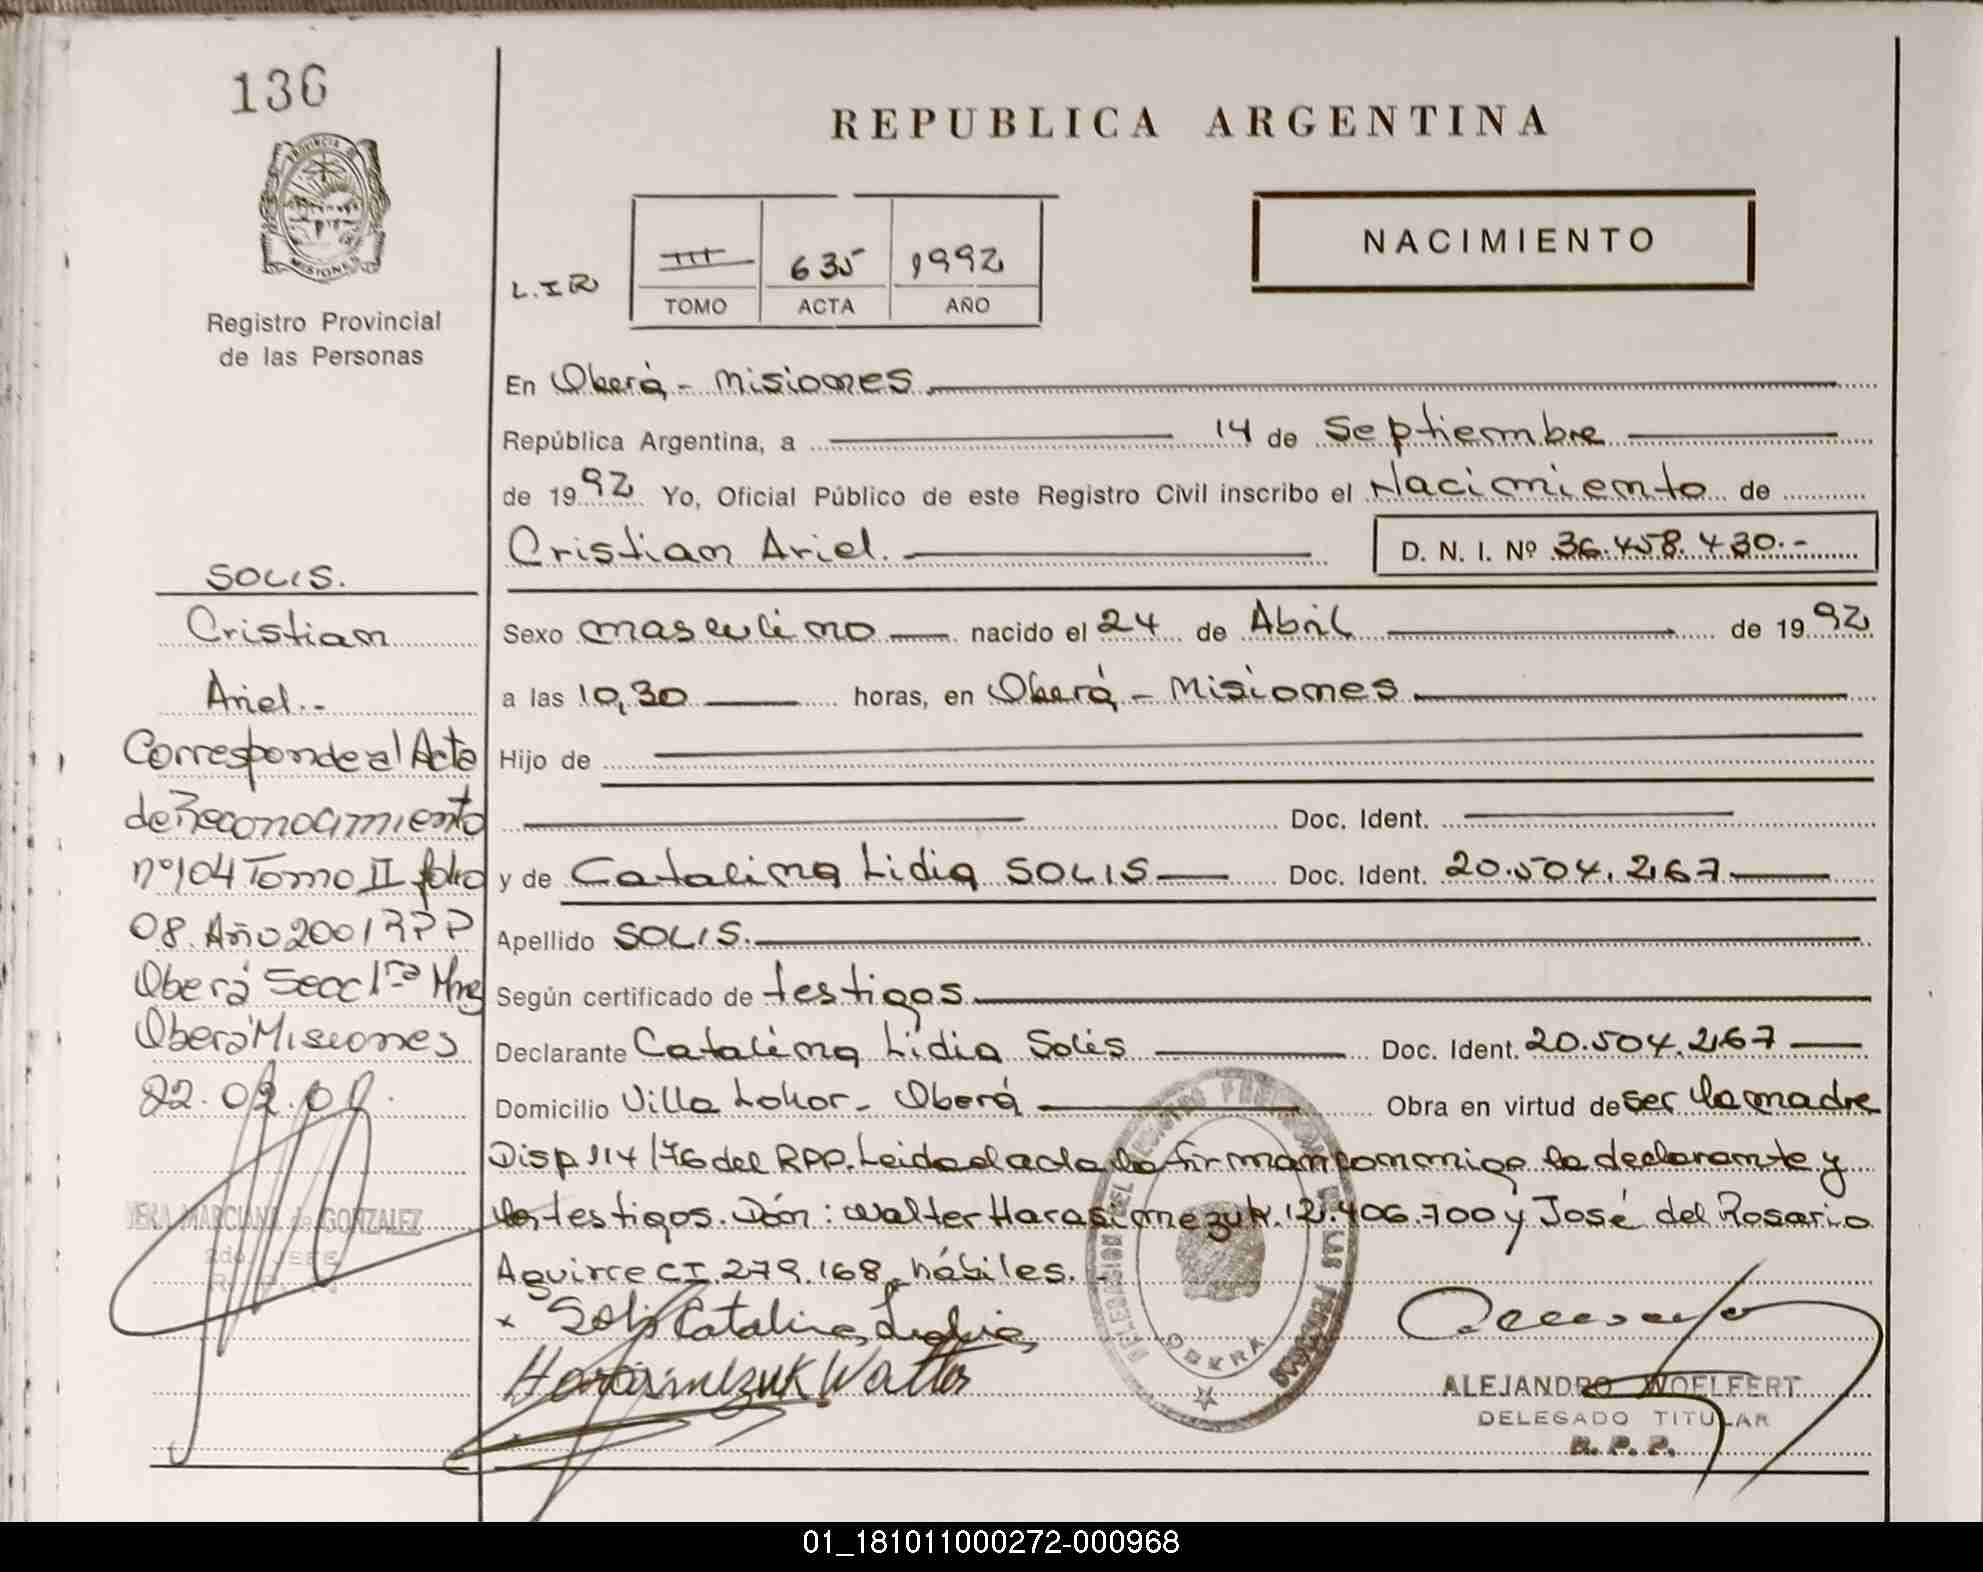 136
PROVINCIA DE
MISIONES
Registro Provincial
de las Personas
REPUBLICA ARGENTINA
NACIMIENTO
L.IR
III 635 1992
TOMO ACTA AÑO
En Oberá - Misiones
República Argentina, a 14 de Septiembre
de 1992 Yo, Oficial Público de este Registro Civil inscribo el Nacimiento de
Cristian Ariel. D. N. I. Nº 36.458.430.-
Sexo masculino nacido el 24 de Abril de 1992
a las 10,30 horas, en Oberá - Misiones
Hijo de
Doc. Ident.
y de Catalina Lidia SOLIS Doc. Ident. 20.504.267
Apellido SOLIS.
Según certificado de testigos
Declarante Catalina Lidia Solis Doc. Ident. 20.504.267
Domicilio Villa Lokor - Oberá Obra en virtud de ser la madre
Disp 114/76 del RPP. Leida el acta la firman conmigo la declarante y
los testigos. Don: Walter Harasimezuk. 12.406.700 y José del Rosario
Aguirre CI. 279.168 hábiles.
x Solis Catalina Lidia
Harasimezuk Walter
ALEJANDRO WOELFERT
DELEGADO TITULAR
R. P. P.
DELEGACION DEL REGISTRO PROVINCIAL DE LAS PERSONAS
OBERA
SOLIS.
Cristian
Ariel.-
Corresponde al Acta
de Reconocimiento
nº 104 Tomo II folio
08. Año 2001 RPP
Oberá Secc 1ra Mnes
Oberá Misiones
22.02.01.
VERA MARCIANA de GONZALEZ
2do. JEFE
01_181011000272-000968